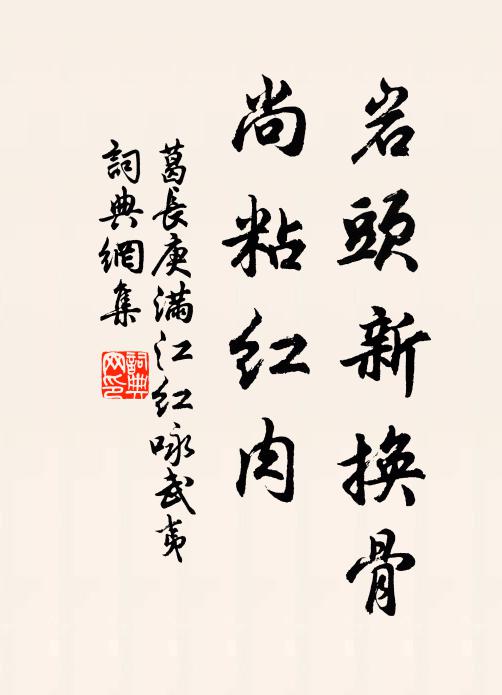 岩頭新換骨
尚粘紅肉
葛長庚滿江紅咏武夷
詞典網集
詞典網印